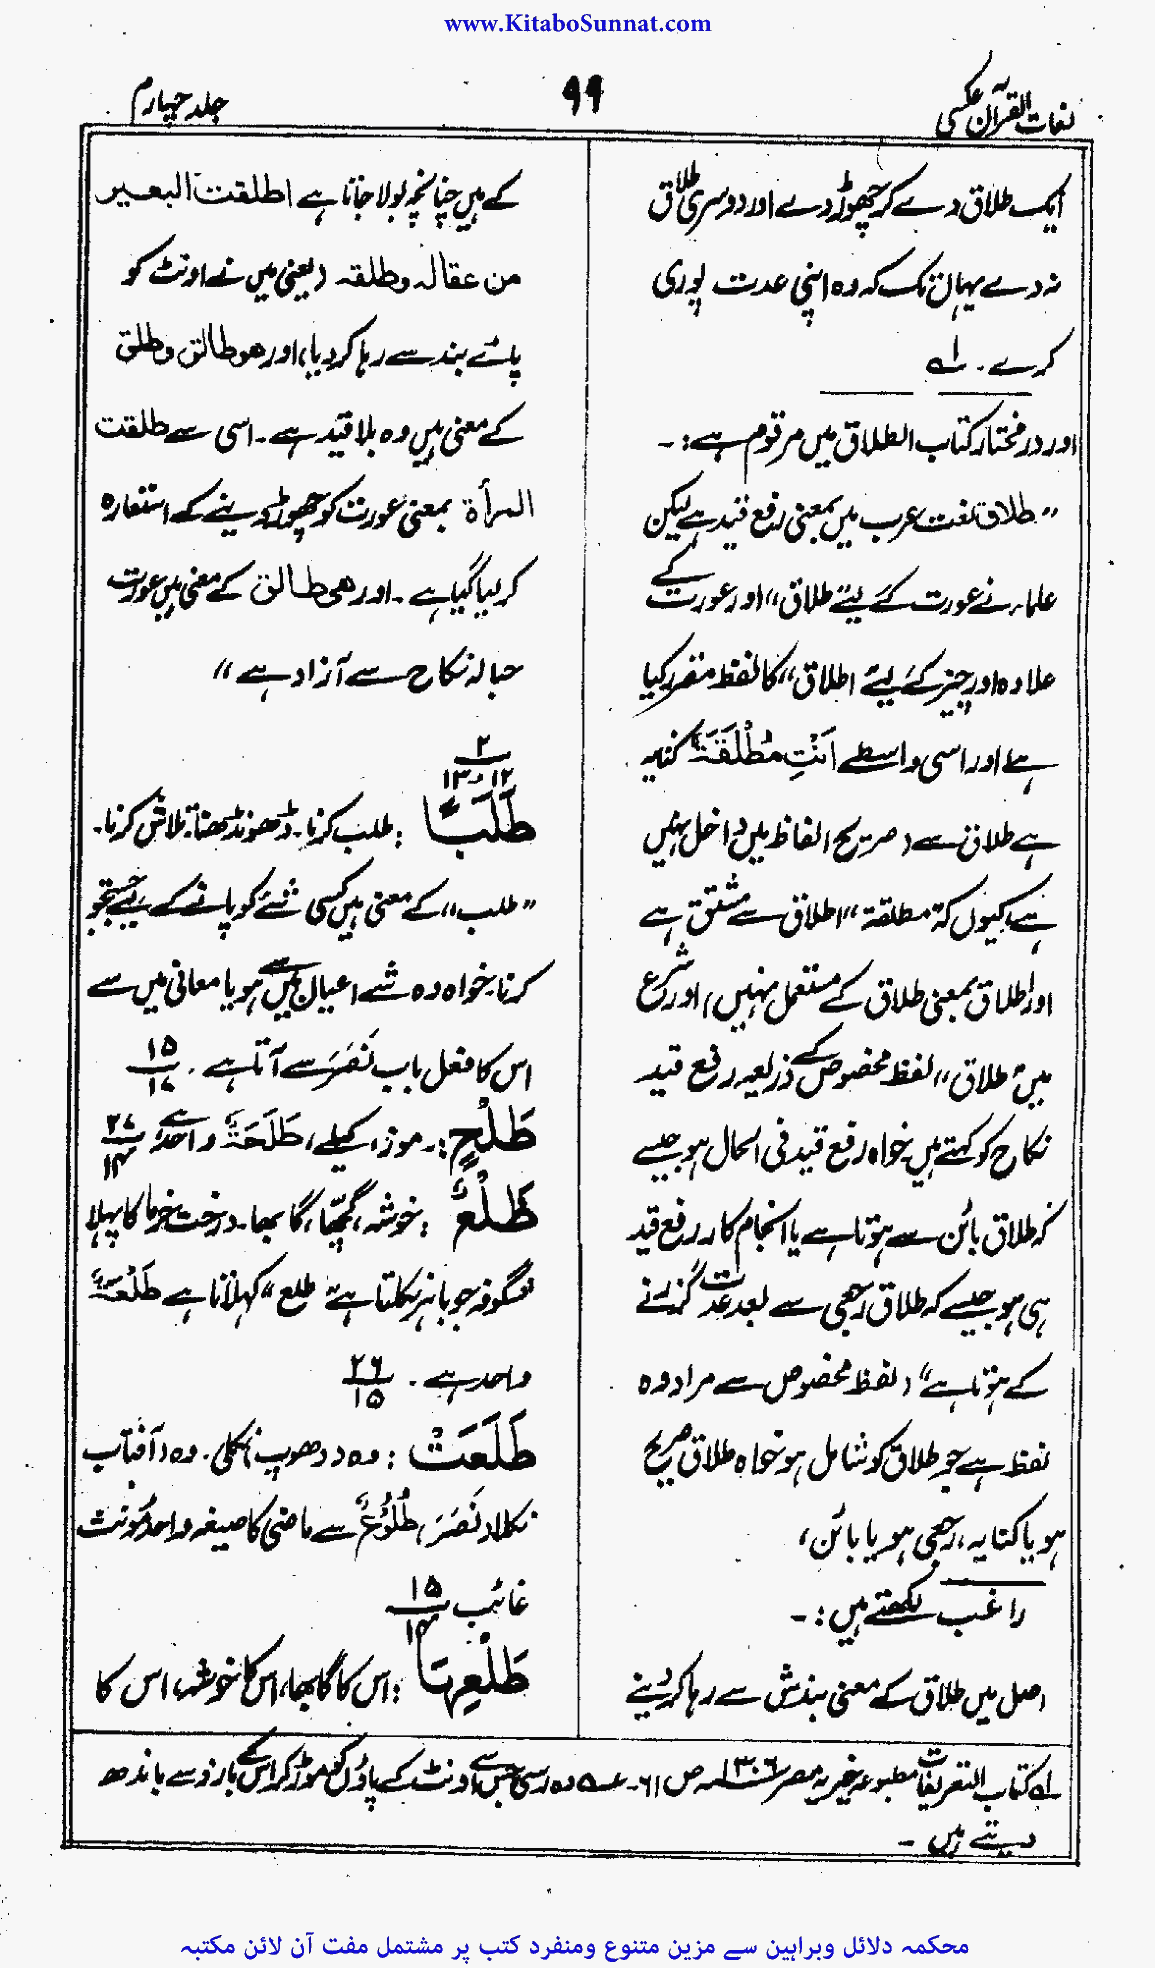 www.KitaboSunnat.com
لغات القرآن عکسی
۹۹
جلد چہارم
ایک طلاق دے کر چھوڑ دے اور دوسری طلاق
نہ دے یہاں تک کہ وہ اپنی عدت پوری
کرے۔ ؎۱
اور درمختار کتاب الطلاق میں مرقوم ہے:۔
”طلاق لغت عرب میں بمعنی رفع قید ہے لیکن
علماء نے عورت کے لئے طلاق“ اور عورت کے
علاوہ اور چیز کے لئے اطلاق“ کا لفظ مقرر کیا
ہے اور اسی واسطے اَنْتِ مُطْلَقَةٌ کنایہ
ہے طلاق سے (صریح الفاظ میں داخل نہیں
ہے کیوں کہ مطلقۃ“ اطلاق سے مشتق ہے
اور اطلاق بمعنی طلاق کے مستعمل نہیں) اور شرع
میں ”طلاق“ لفظ مخصوص کے ذریعہ رفع قید
نکاح کو کہتے ہیں خواہ رفع قید فی الحال ہو جیسے
کہ طلاق بائن سے ہوتا ہے یا انجام کار رفع قید
ہی ہو جیسے کہ طلاق رجعی سے بعد عدت گزرنے
کے ہوتا ہے“ (لفظ مخصوص سے مراد وہ
لفظ ہے جو طلاق کو شامل ہو خواہ طلاق صریح
ہو یا کنایہ، رجعی ہو یا بائن،
راغب لکھتے ہیں:۔
اصل میں طلاق کے معنی بندش سے رہا کر دینے
کے ہیں چنانچہ بولا جاتا ہے اطلقت البعیر
من عقالہ وطلقہ (یعنی میں نے اونٹ کو
پائے بند سے رہا کر دیا) اور ھو طالق وطلق
کے معنی ہیں وہ بلا قید ہے۔ اسی سے طلقت
المرأۃ بمعنی عورت کو چھوڑ دینے کے استعارہ
کر لیا گیا ہے۔ اور ھی طالق کے معنی ہیں عورت
حبالہ نکاح سے آزاد ہے“
۲
۱۲ و ۱۳
طَلَبًا : طلب کرنا۔ ڈھونڈھنا۔ تلاش کرنا۔
”طلب“ کے معنی ہیں کسی شئے کو پانے کے لئے جستجو
کرنا خواہ وہ شے اعیان میں سے ہو یا معانی میں سے
اس کا فعل باب نَصَرَ سے آتا ہے۔ ۱۵ ۱۷
طَلْحٍ :۔ موز، کیلے، طَلْحَةٌ واحد ہے ۲۷ ۱۴
طَلْعٌ : خوشہ، گچھّا، گابھا۔ درخت خرما کا پہلا
شگوفہ جو باہر نکلتا ہے ”طلع“ کہلاتا ہے طَلْعَةٌ
واحد ہے۔ ۲۶ ۱۵
طَلَعَتْ : وہ (دھوپ) نکلی۔ وہ (آفتاب)
نکلا (نَصَرَ) طُلُوْعٌ سے ماضی کا صیغہ واحد مؤنث
غائب ۱۵ ۱۴
طَلْعِهَا : اس کا گابھا، اس کا خوشہ، اس کا
؎۱ کتاب التعریفات مطبوعہ خیریہ مصر ۱۳۰۶ھ ص ۶۱۔ ؎ وہ رسی جس سے اونٹ کے پاؤں کو موڑ کر اس کے بازو سے باندھ
دیتے ہیں۔
محکمہ دلائل وبراہین سے مزین متنوع ومنفرد کتب پر مشتمل مفت آن لائن مکتبہ